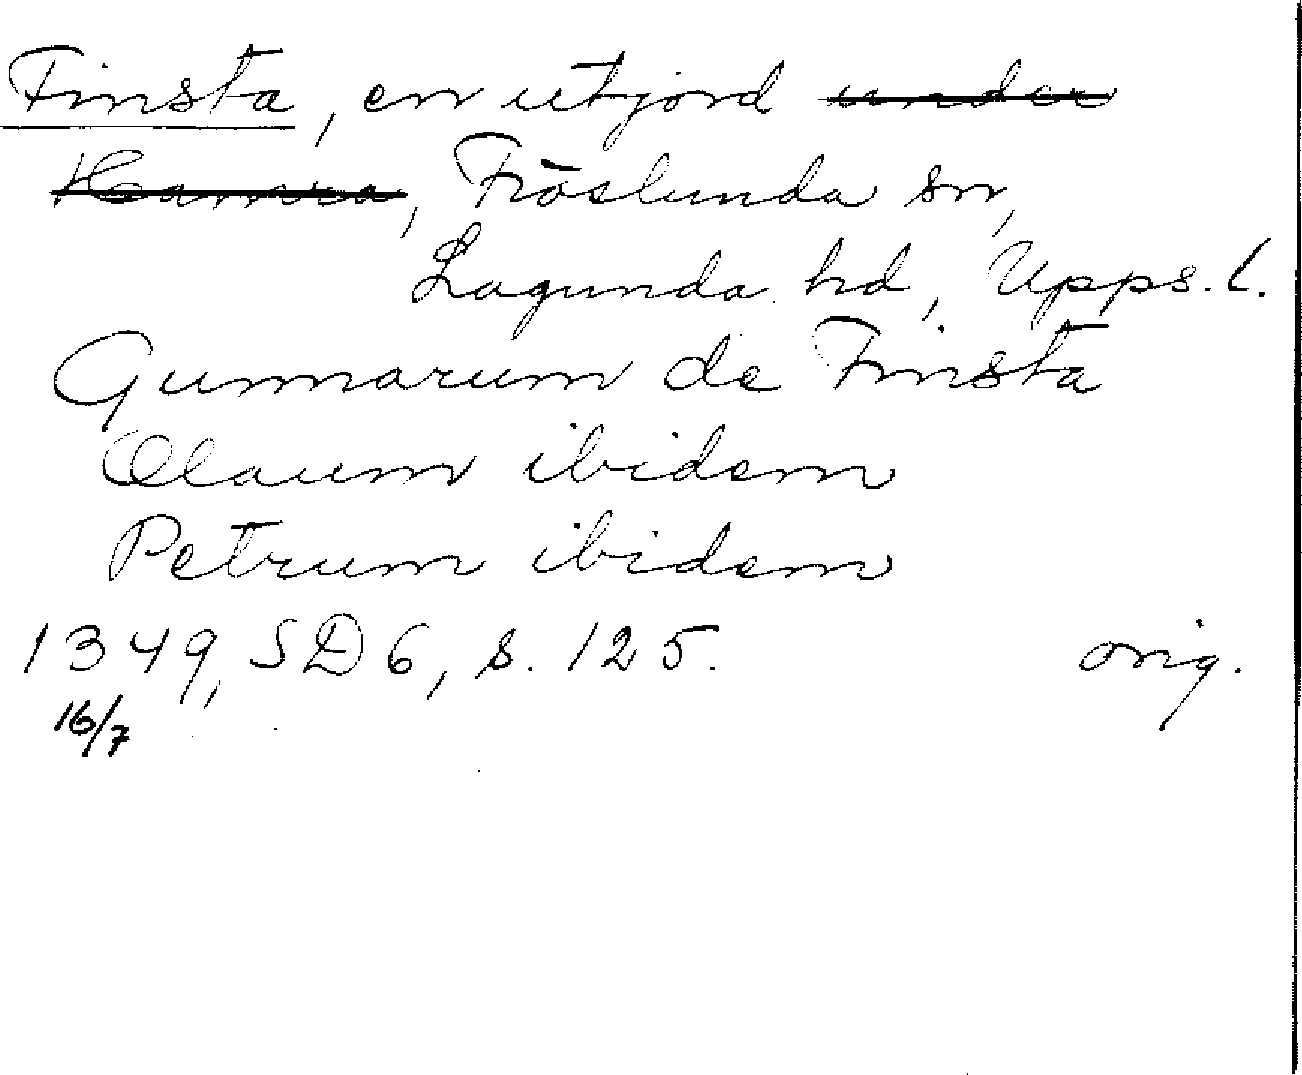 Finsta, en utjord under
Hamra, Fröslunda sn,
Lagunda hd, Upps. l.
Gunnarum de Finsta
Olaum ibidem
Petrum ibidem
1349, SD 6, s. 125. orig.
16/7